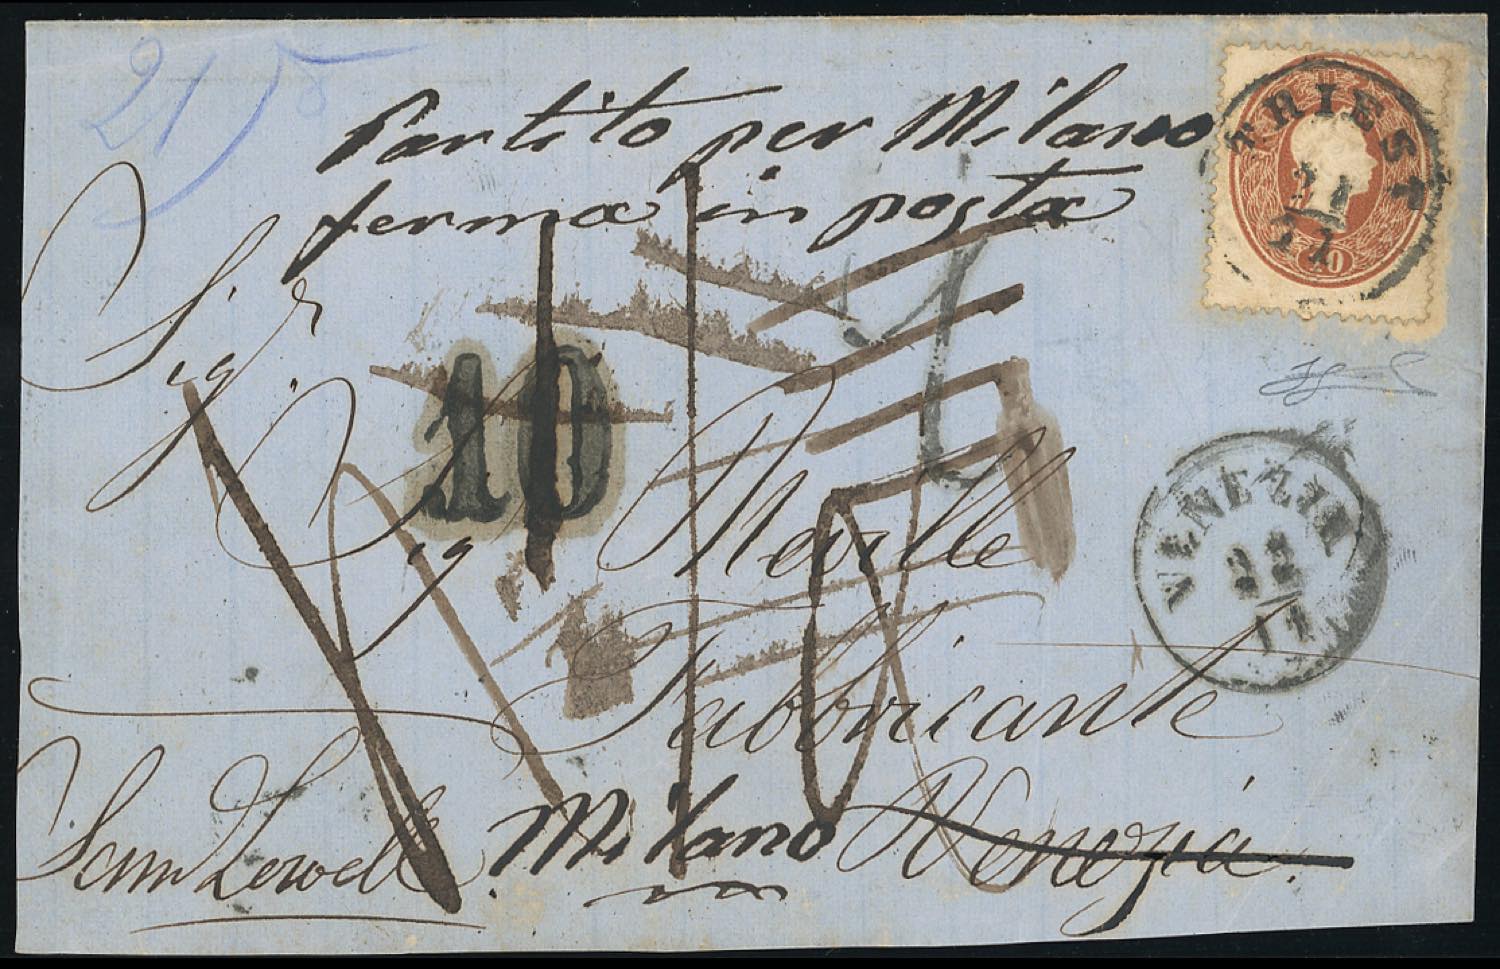 21
Partito per Milano
ferma in posta
TRIEST
21
11
10
Sigr
10
Sig Neville
VENEZIA
22
11
Fabbricante
Milano Venezia.
Sam Lowell